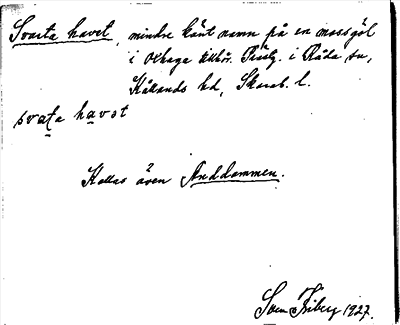 Svarta havet, mindre känt namn på en mossgöl
i Okhaga tillhör. Prästg. i Råda sn,
Kållands hd, Skarab. l.
svata havet
Kallas även Anddammen.
Sven Friberg 1927.